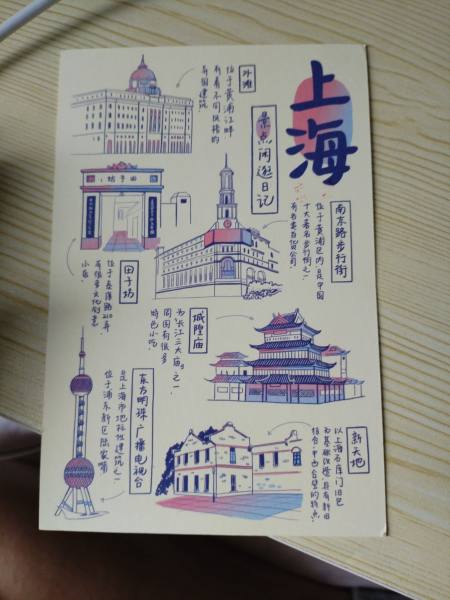 上海
景点闲逛日记
外滩
位于黄浦江畔
有着不同风格的
万国建筑!
南京路步行街
位于黄浦区内,是中国
十大著名步行街之一!
有百多家百货公司!
田子坊
田子坊
位于泰康路210弄,
有很多文化创意
小店!
城隍庙
为“长江三大庙”之一,
周围有很多
特色小吃!
东方明珠广播电视台
是上海市地标性建筑之一
位于浦东新区陆家嘴
新天地
以上海石库门旧区
为基础改造,具有新旧
结合、中西合璧的特点!